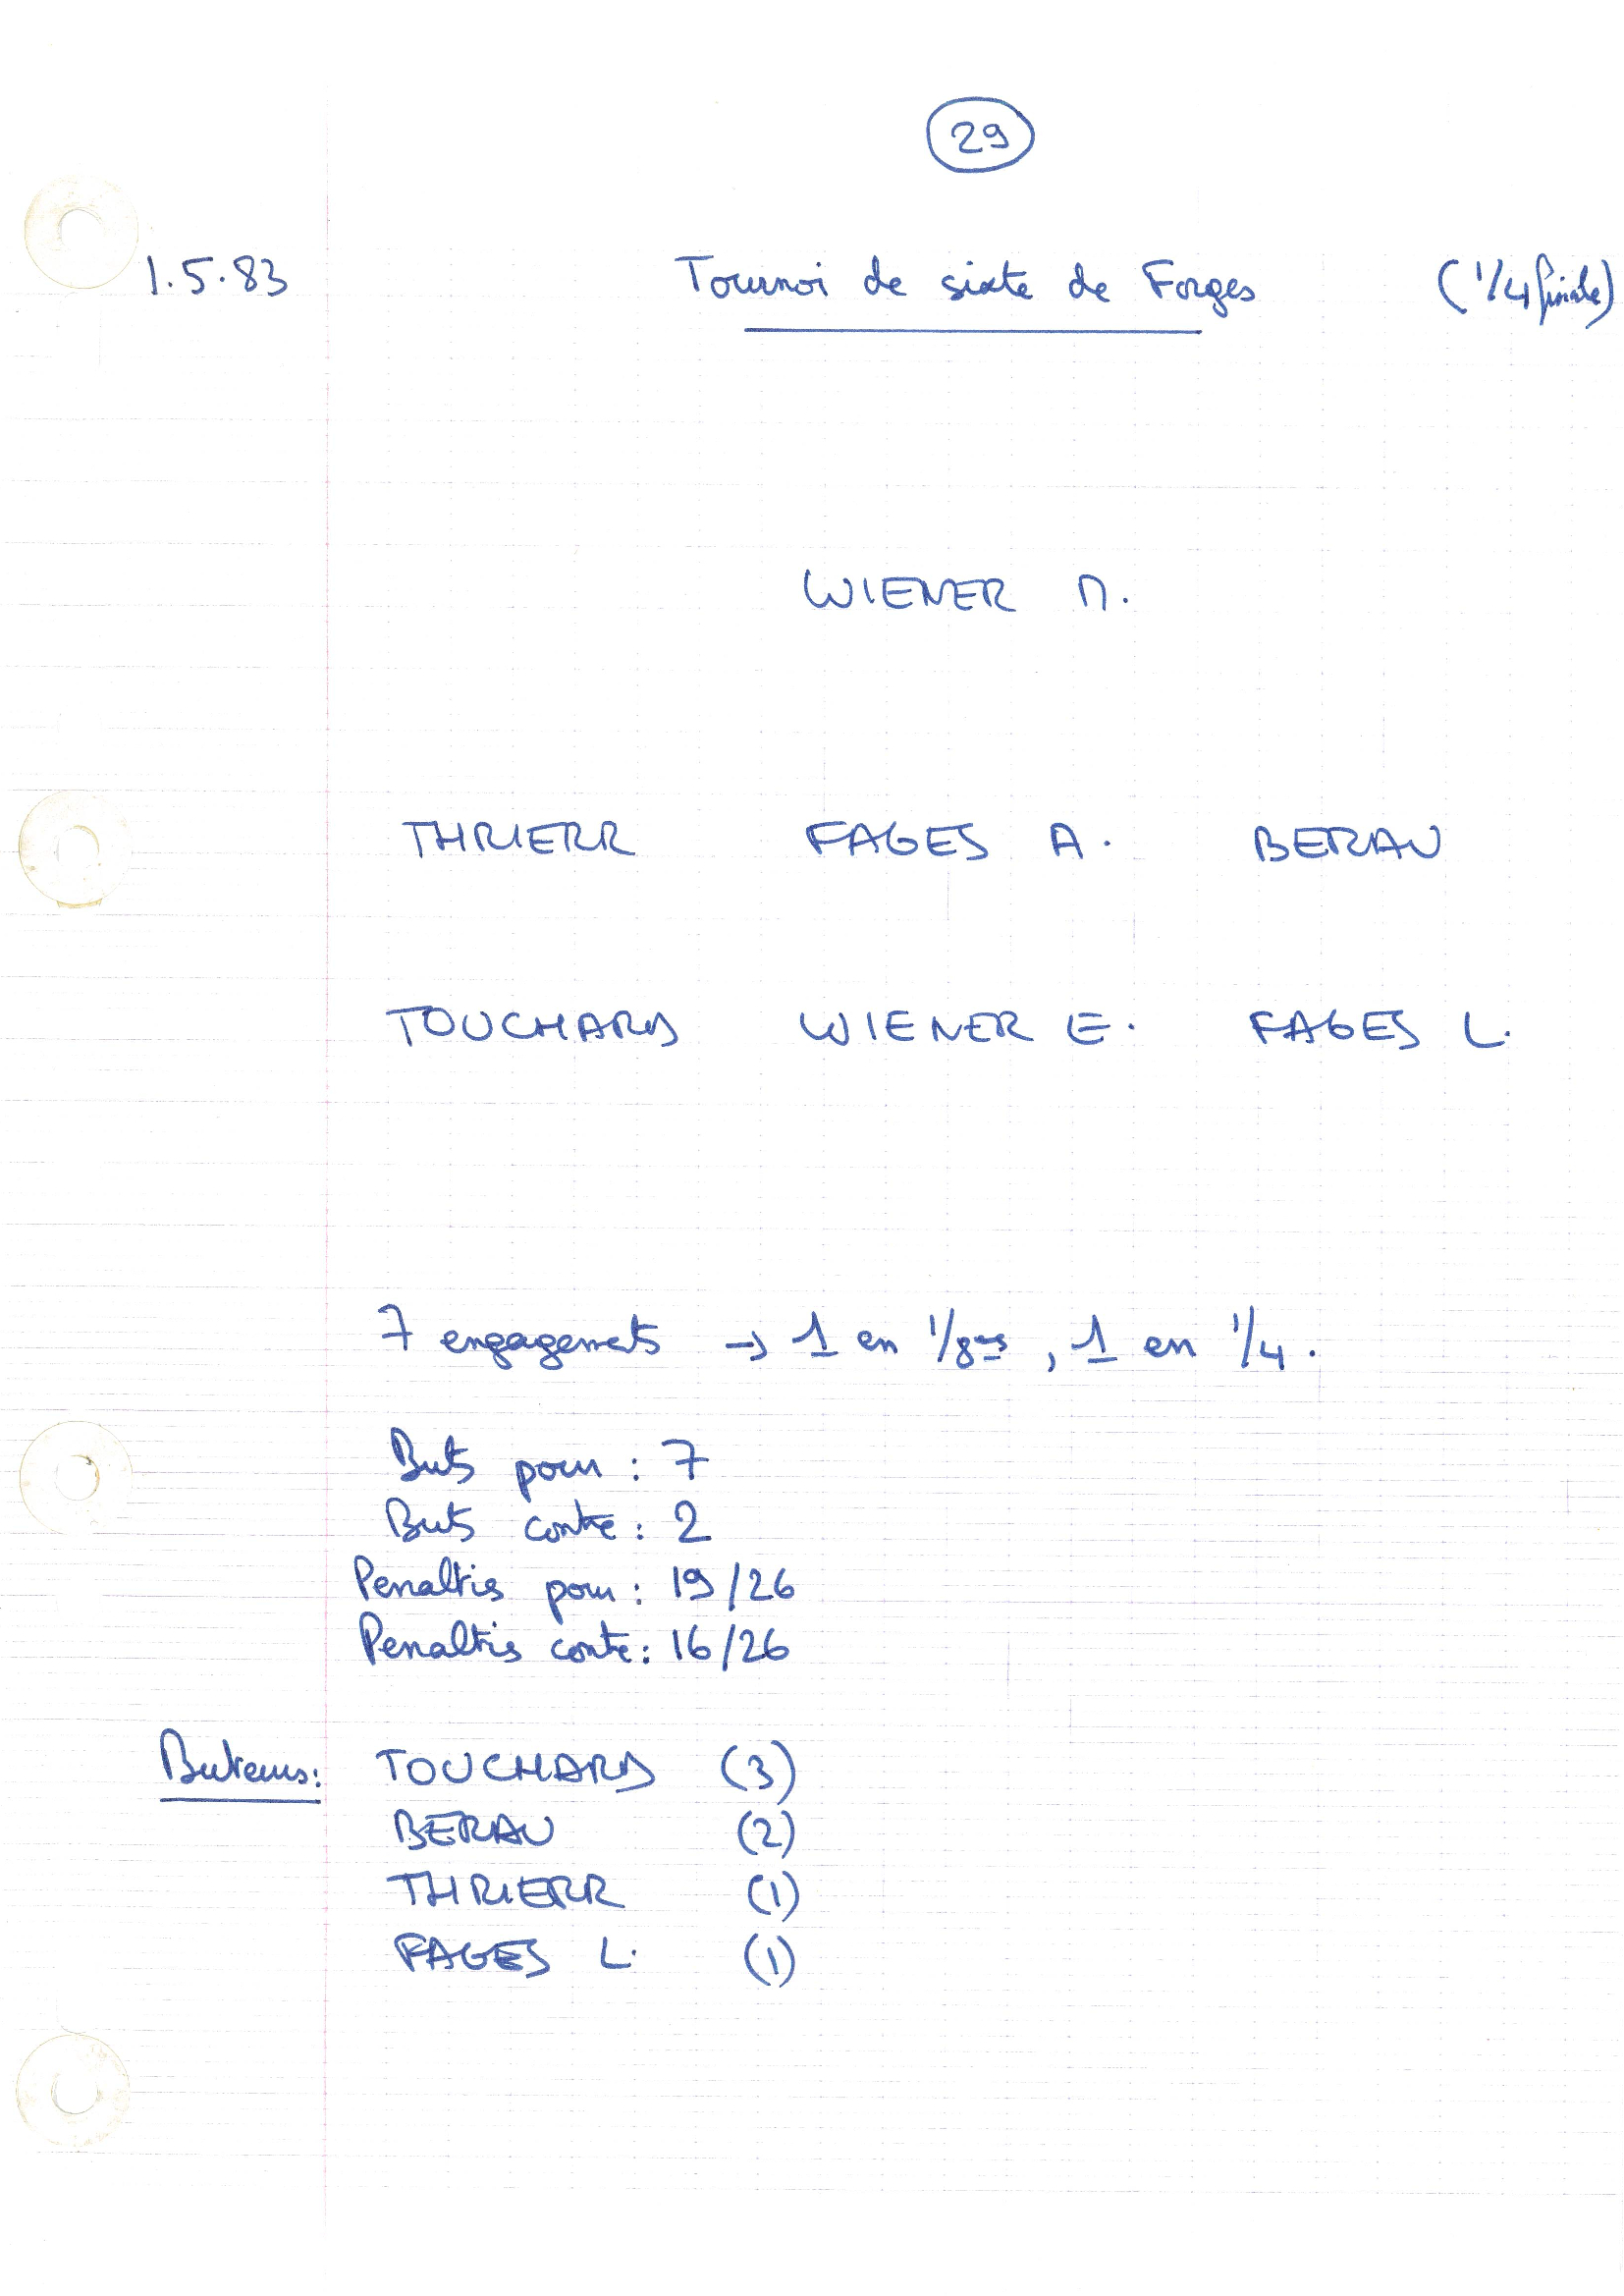 29
1.5.83 Tournoi de sixte de Forges (1/4 finale)
WIENER M.
THRIERR FAGES A. BERAU
TOUCHARD WIENER E. FAGES L.
7 engagements → 1 en 1/8es, 1 en 1/4.
Buts pour : 7
Buts contre : 2
Penaltis pour : 19/26
Penaltis contre : 16/26
Buteurs: TOUCHARD (3)
BERAU (2)
THRIERR (1)
FAGES L. (1)